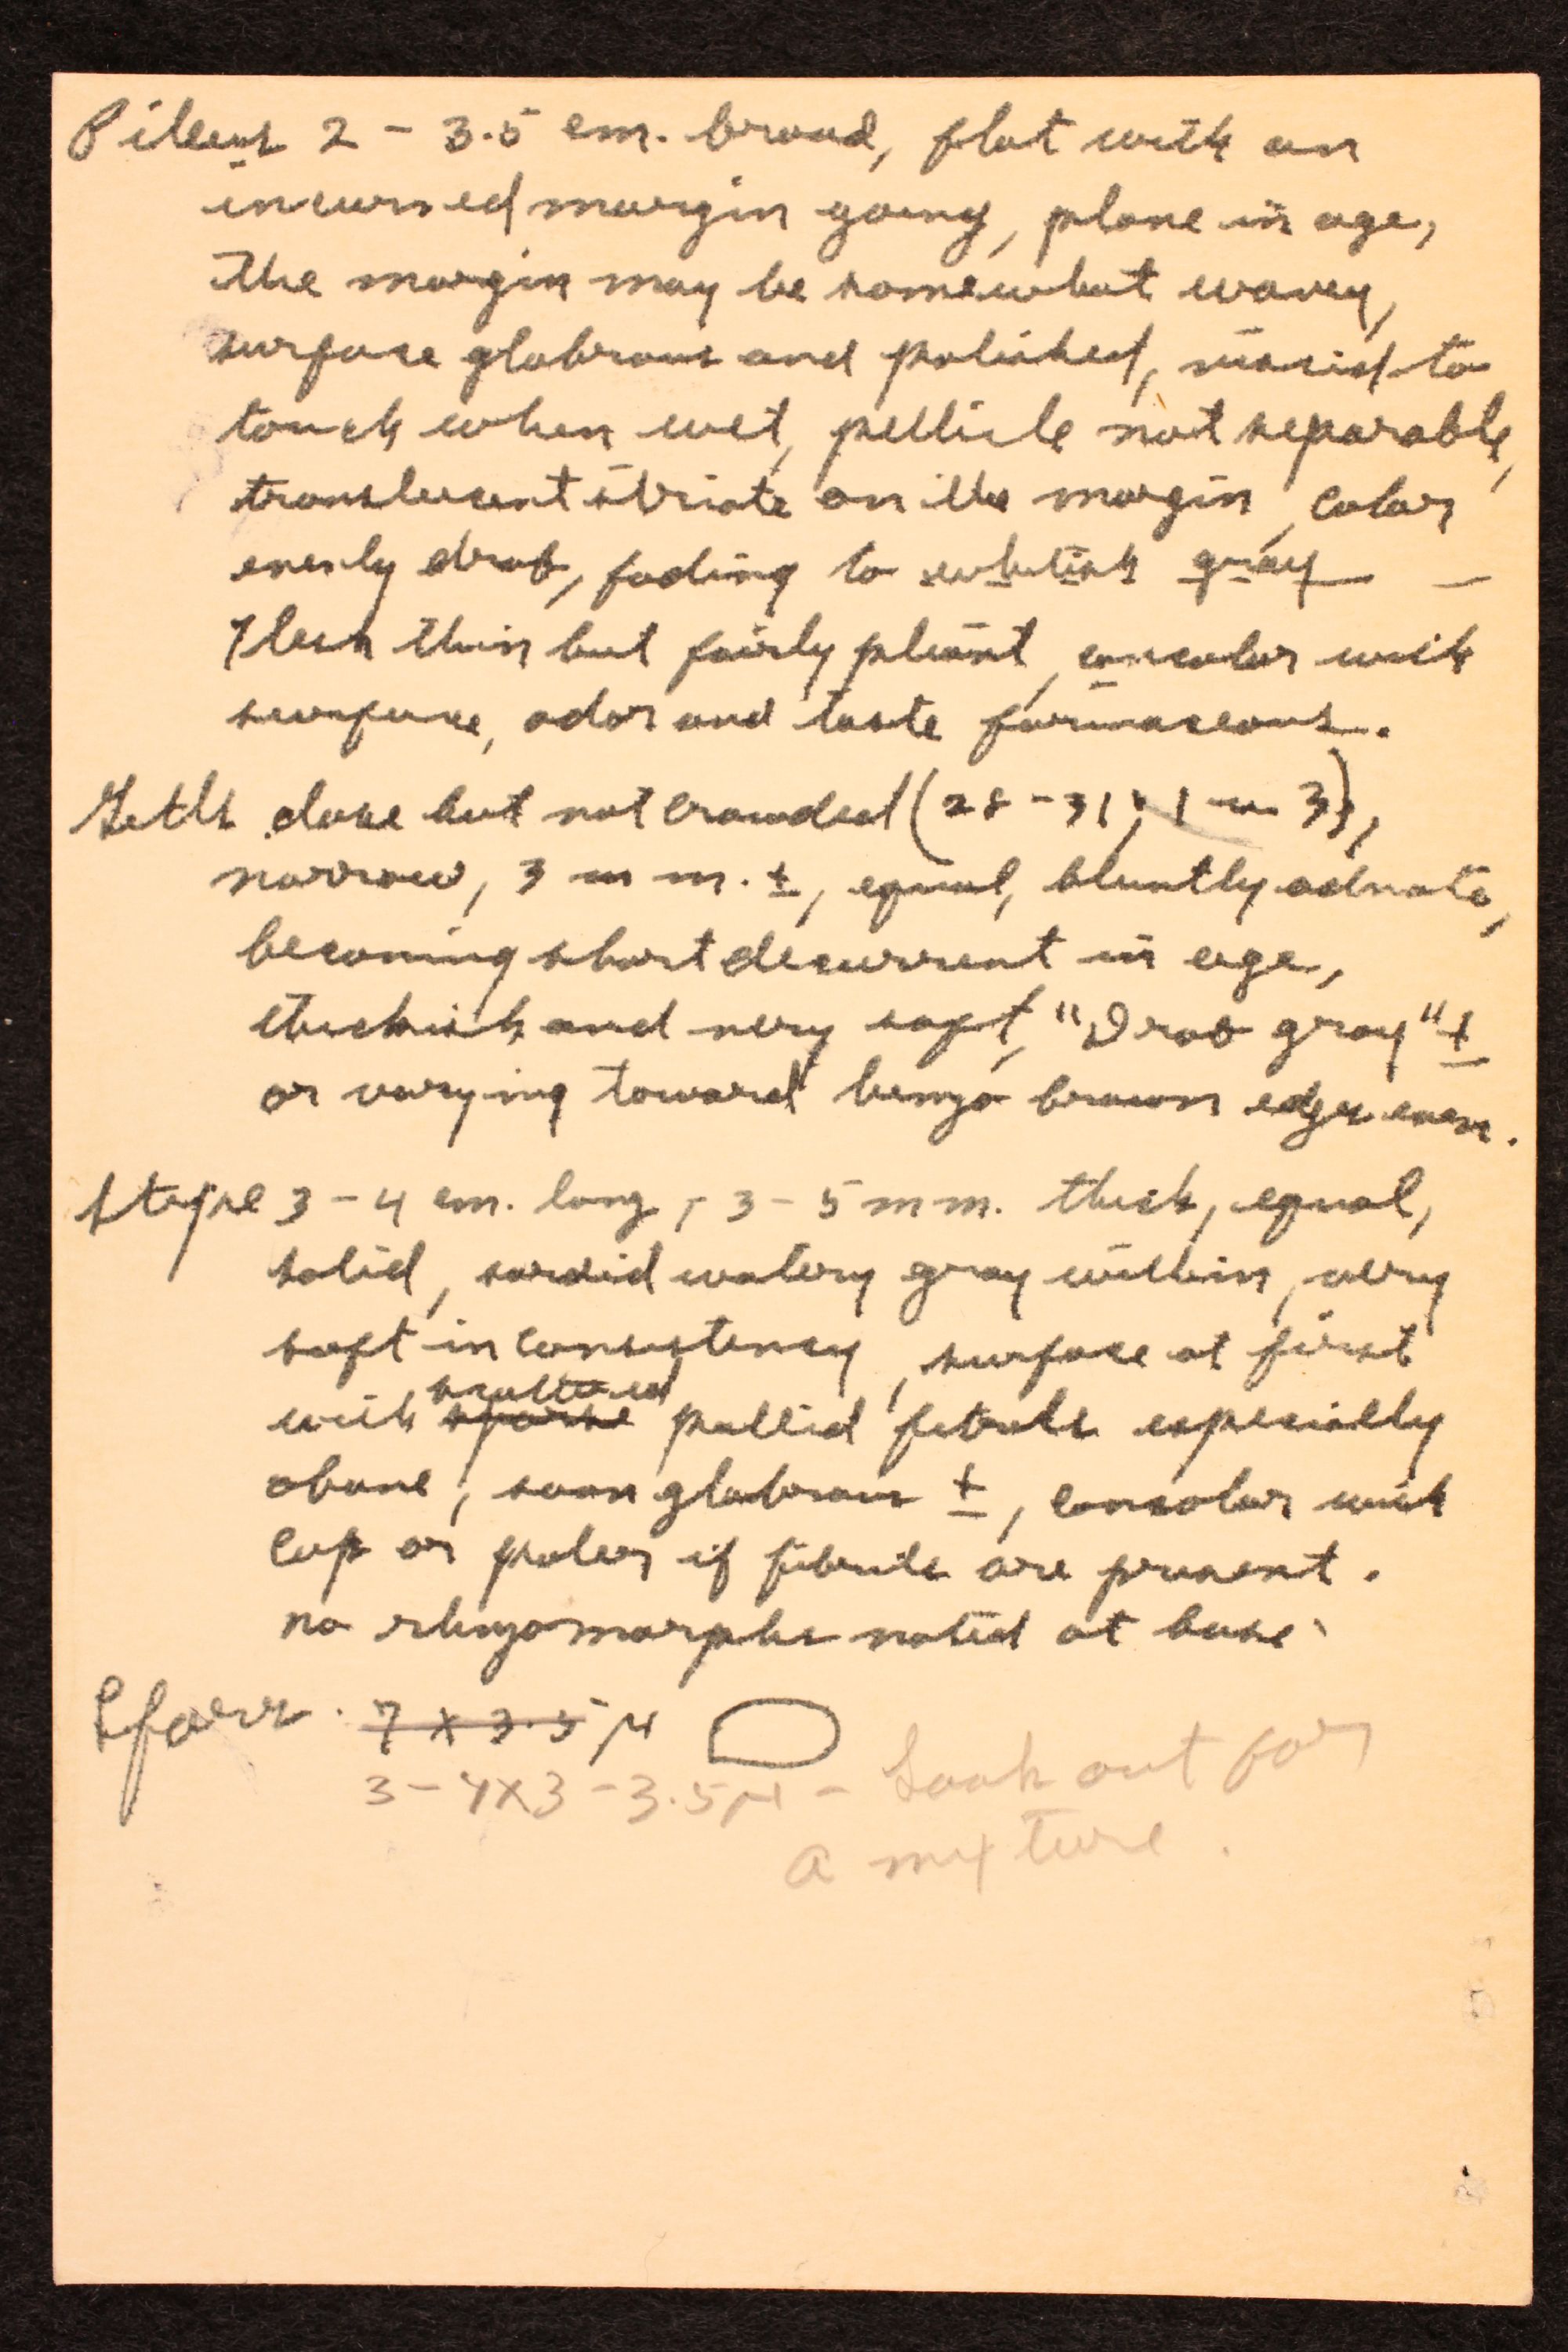 Pileus 2 - 3.5 cm. broad, flat with an
incurved margin young, plane in age,
the margin may be somewhat wavey,
surface glabrous and polished, viscid to
touch when wet, pellicle not separable,
translucent striate on the margin, color
evenly drab, fading to whitish gray —
Flesh thin but fairly pliant, concolor with
surface, odor and taste farinaceous.
Gills close but not crowded (28-31; 1 - 3),
narrow, 3 mm. ±, equal, bluntly adnate,
becoming short decurrent in age,
thickish and very soft, "Drab gray" ±
or varying toward benzo brown edges even.
Stipe 3-4 cm. long, 3-5 mm. thick, equal,
solid, sordid watery gray within, very
soft in consistency, surface at first
with sparse scattered pallid fibrils especially
above, soon glabrous ±, concolor with
cap or paler if fibrils are present.
no rhizomorphs noted at base.
Spores. 7 x 3.5 µ
3-4x3-3.5µ - Look out for
a mixture.